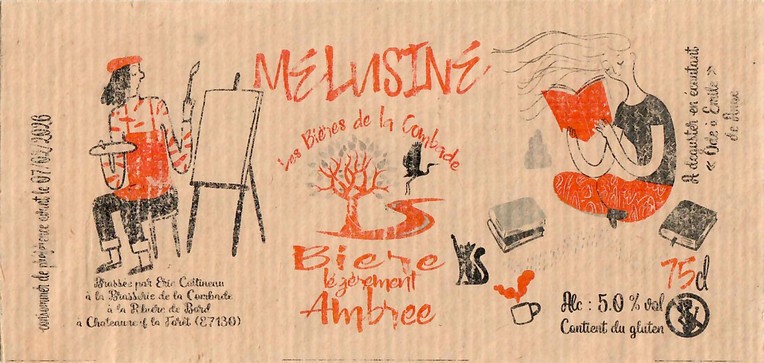 MÉLUSINE
Les Bières de la Combade
Bière
légèrement
Ambrée
consommer de préférence avant le 07/02/2026
Brassée par Eric Cattineau
à la Brasserie de la Combade
à la Ribière de Bord
à Chateauneuf la Forêt (87130)
A déguster en écoutant
« Ode à Emile »
de
75cl
Alc : 5.0 % vol
Contient du gluten